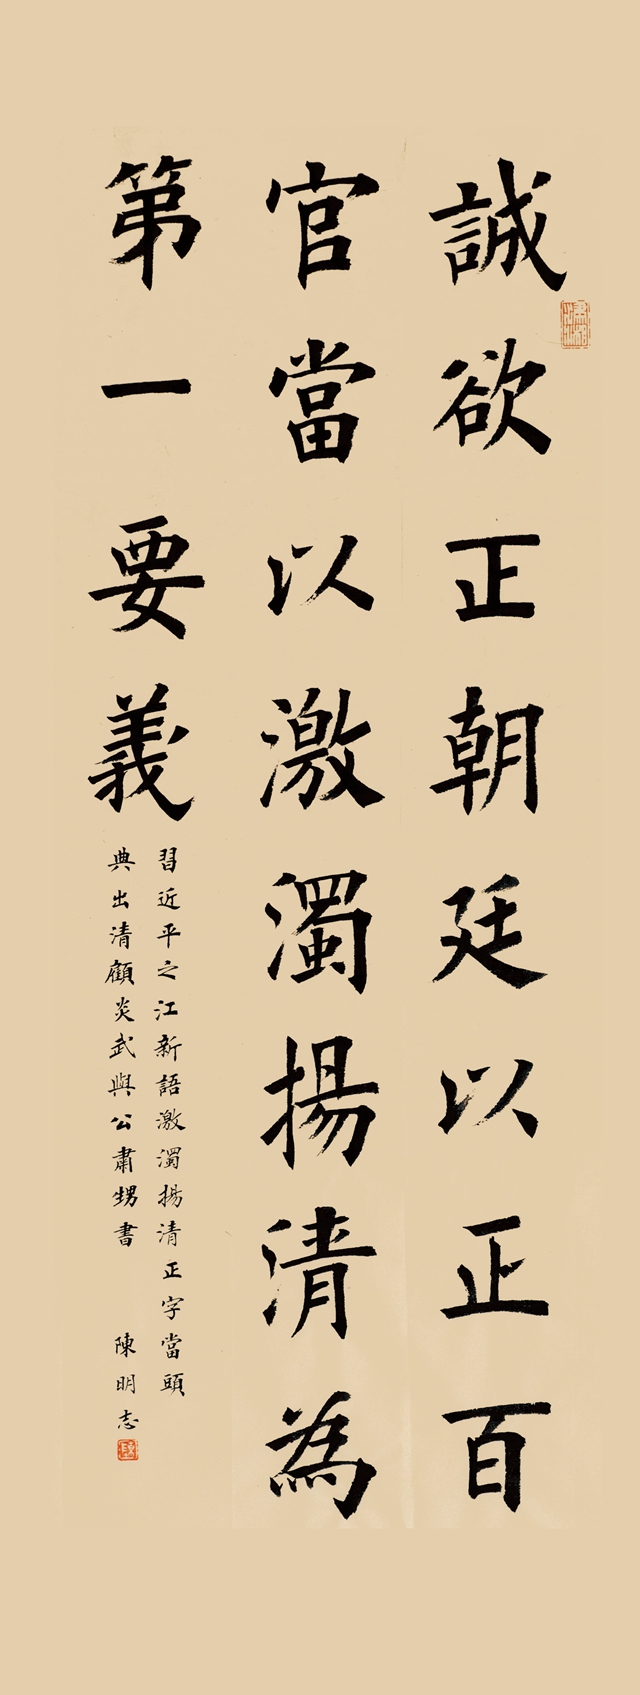 誠欲正朝廷以正百
官當以激濁揚清為
第一要義
習近平之江新語激濁揚清正字當頭
典出清顧炎武與公肅甥書
陳明志